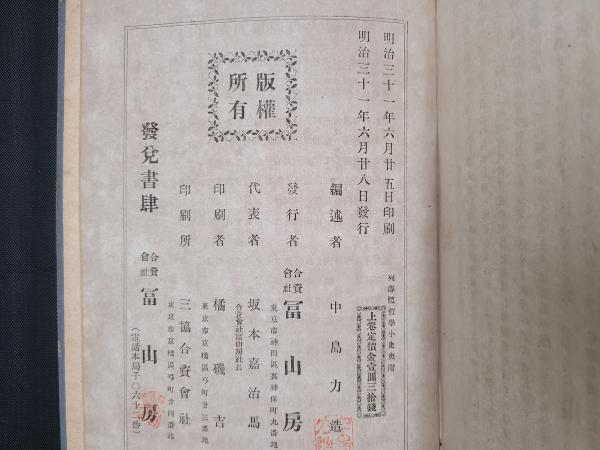 明治三十一年六月廿五日印刷
明治三十一年六月廿八日發行
列傳體哲學小史奥附
上卷定價金壹圓三拾錢
版權
所有
編述者 中島力造
發行者 合資會社 冨山房
東京市神田區裏神保町九番地
代表者 坂本嘉治馬
合資會社冨山房社長
印刷者 橘磯吉
東京市京橋區弓町廿三番地
印刷所 三協合資會社
東京市京橋區弓町廿四番地
發兌書肆 合資會社 冨山房
(電話本局千〇六十二番)